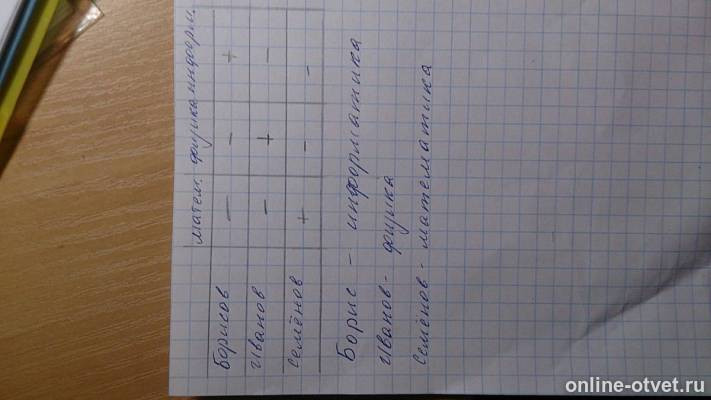 матем. физика информ.
Борисов - - +
Иванов - + -
Семёнов + - -
Борис - информатика
Иванов - физика
Семёнов - математика
online-otvet.ru